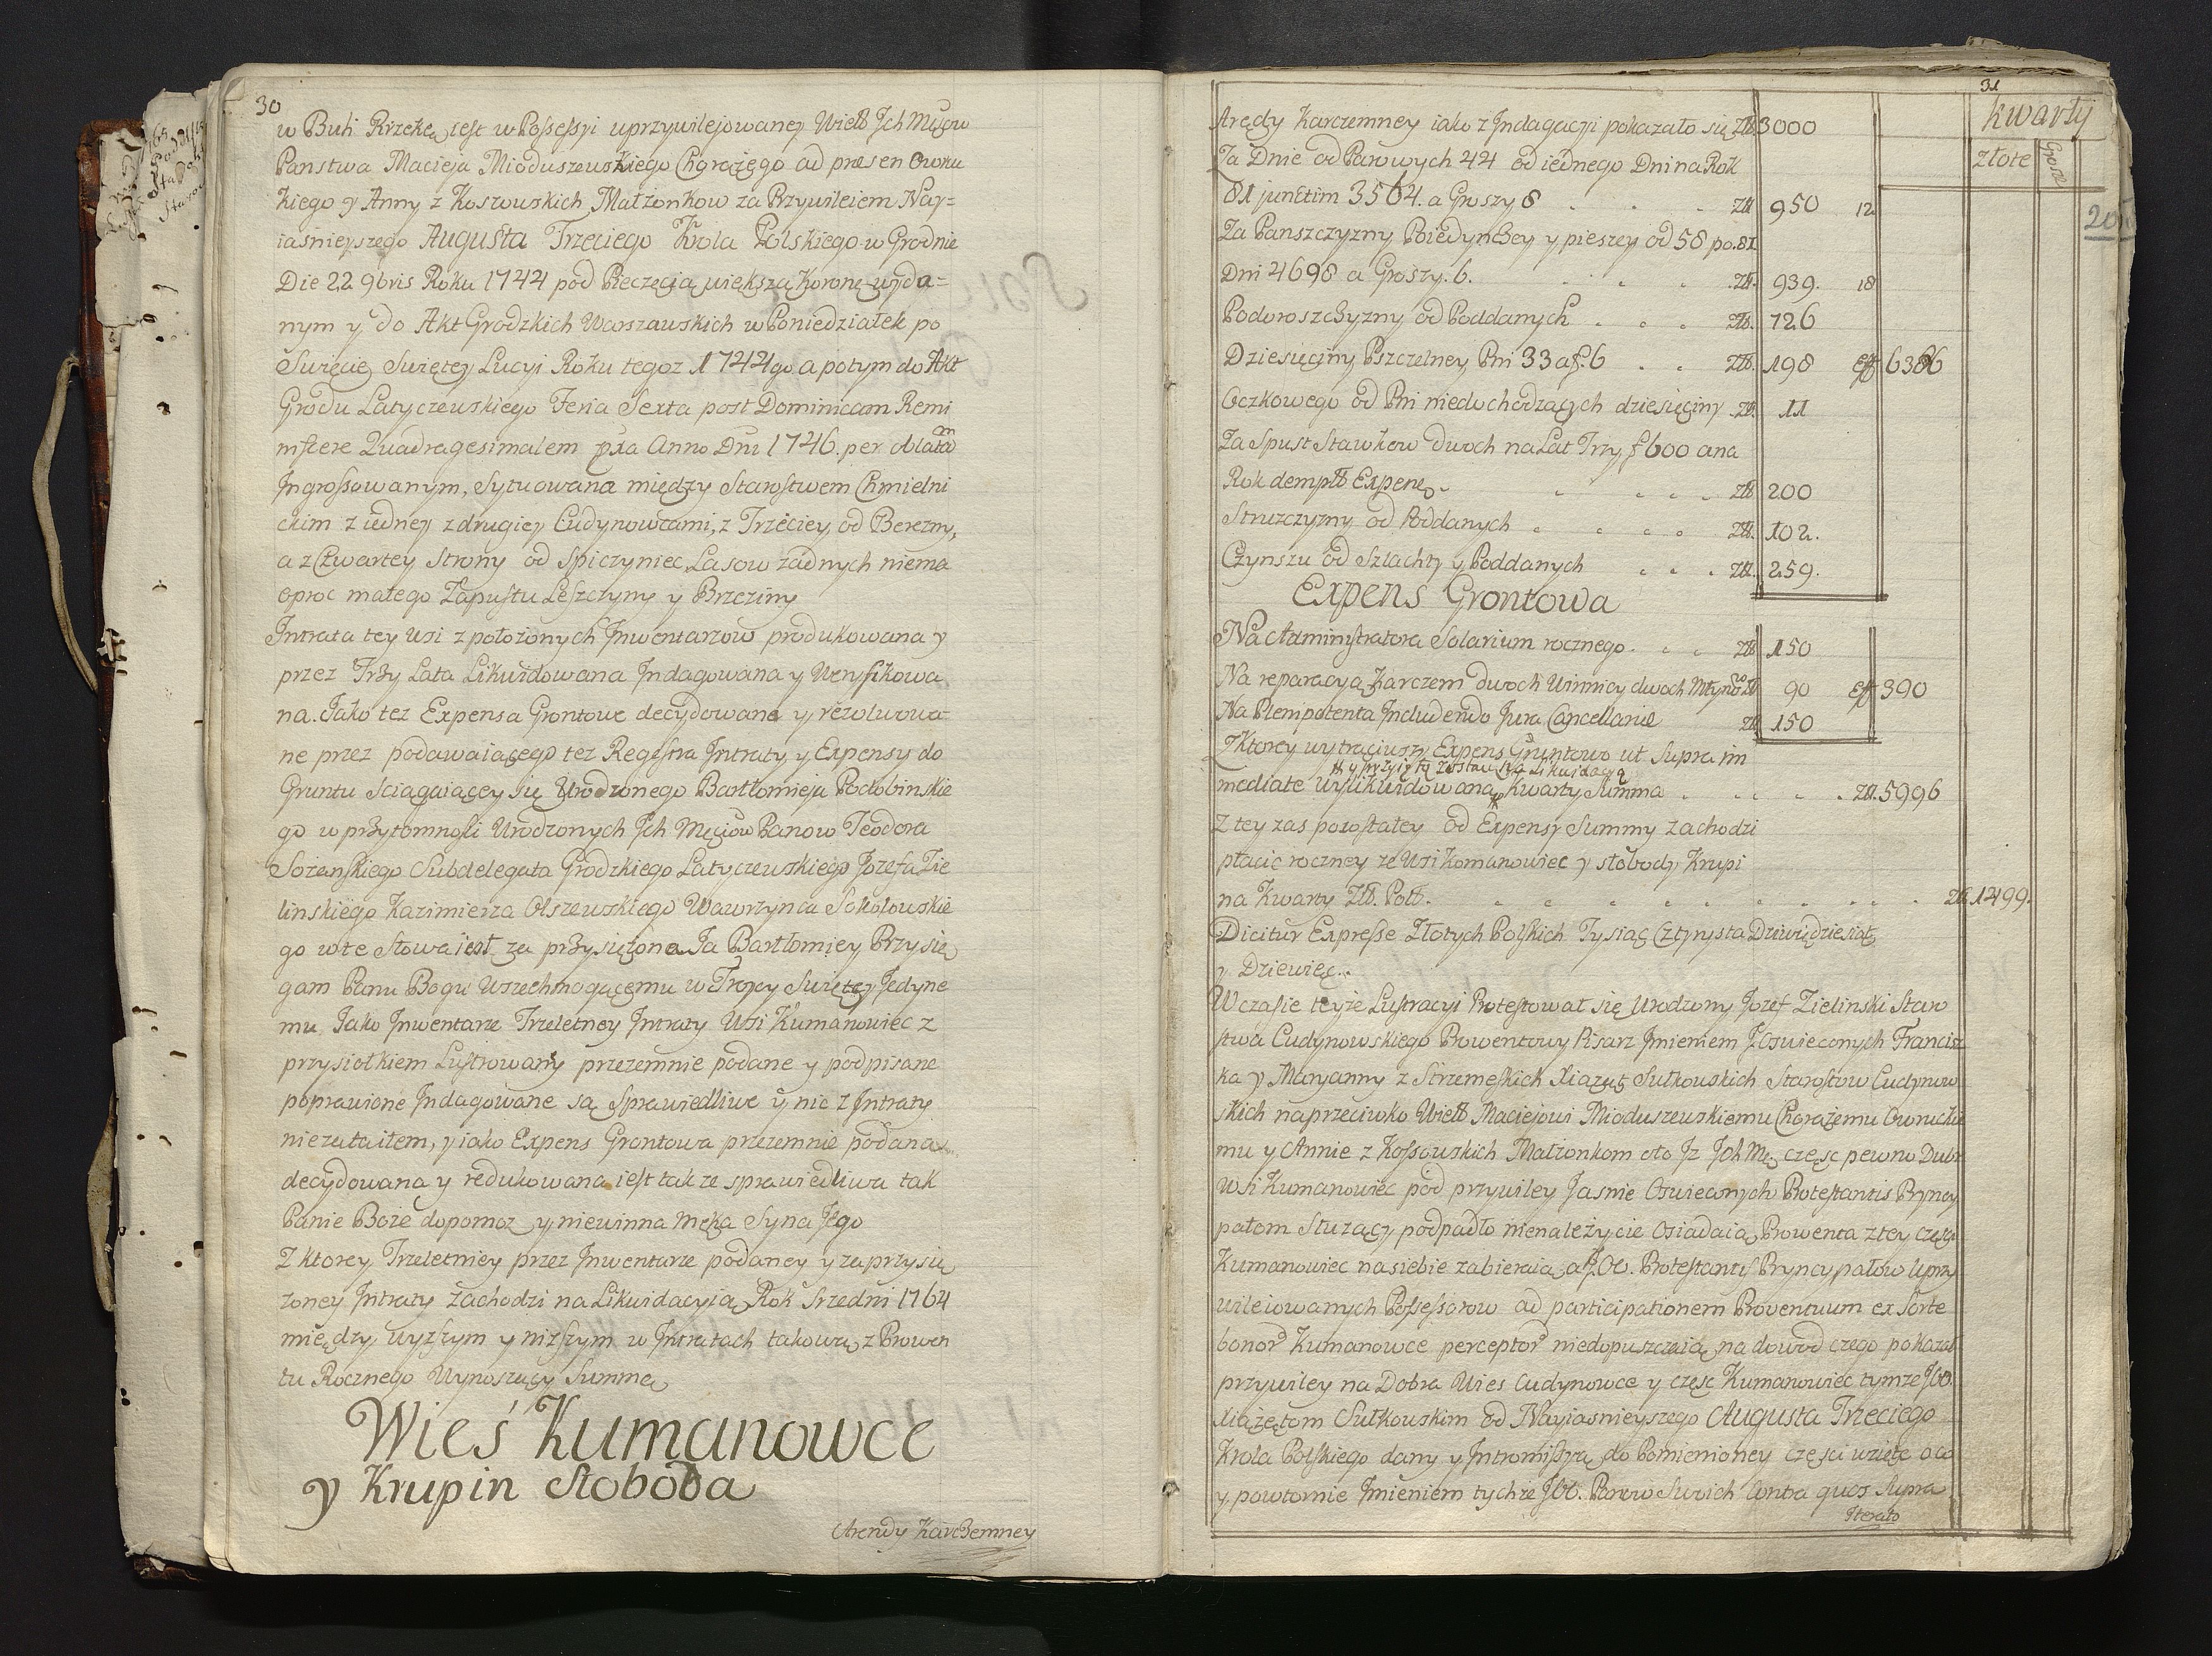 30
w Buh Rzekę, jest w Possessyi uprzywilejowaney Wielb Ich Mściow
Panstwa Macieja Mioduszewskiego Chorążego ad præsen Owru
kiego y Anny z Koszowskich Małżonkow za Przywilejem Nay=
iasnieyszego Augusta Trzeciego Krola Polskiego w Grodnie
Die 22 9bris Roku 1744 pod Pieczęcią większą Koronę wyda=
nym y do Akt Grodzkich Warszawskich w Poniedziałek po
Swięcie Swiętey Lucyi Roku tegoz 1744go a potym do Akt
Grodu Latyczewskiego Feria Sexta post Dominicam Remi
niscere Quadragesimalem pxa Anno Dni 1746. per oblatam
Ingrossowanym, Sytuowana między Starostwem Chmielni
ckim z iedney z drugiey Cudynowcami, z Trzeciey od Berezny,
a z Czwartey Strony od Spiczyniec, Lasow zadnych niema
oproc małego Zapustu Leszczyny y Brzeziny
Intrata tey Wsi z położonych Inwentarzow produkowana y
przez Trzy Lata Likwidowana Indagowana y Weryfikowa
na. Jako tez Expensa Grontowe decydowane y rezolwowa
ne przez podawaiącego tez Regestra Intraty y Expensy do
Gruntu sciągaiącey się Urodzonego Bartłomieja Podobinskie
go w przytomnosci Urodzonych Ich Mściow Panow Teodora
Sozanskiego Subdelegata Grodzkiego Latyczewskiego Jozefa Zie
linskiego Kazimierza Olszewskiego Wawrzynca Sokołowskie
go w te Słowa iest za przysięzone Ja Bartłomiey Przysię
gam Panu Bogu Wszechmogącemu w Troycy Swiętey Jedyne
mu. Jako Inwentarze Trzeletney Intraty Wsi Kumanowiec z
przysiołkiem Lustrowany przezemnie podane y podpisane
poprawione Indagowane są Sprawiedliwe y nic z Intraty
niezataiłem, y iako Expens Grontowa przezemnie podana
decydowana y redukowana iest takze sprawiedliwa tak
Panie Boze dopomoz y niewinna Męka Syna Jego
Z ktorey Trzeletniey przez Inwentarze podaney y zaprzysię
zoney Intraty zachodzi na Likwidacyią Rok Srzedni 1764
między wyzszym y nizszym w Intratach takową z Prowen
tu Rocznego Wynoszący Summę
Wieś Kumanowce
y Krupin Słoboda
Arendy Karczemney
31
kwarty
złote Grosze
Arędy Karczemney iako z Indagacyi pokazało się Złł 3000
Za Dnie od Parowych 44 od iednego Dni na Rok
81 junctim 3564. a Groszy 8 Złł 950 12
Za Panszczyzny Poiedynczey y pieszey od 58 po. 81
Dni 4698 a Groszy. 6. Złł. 939. 18
Podoroszczyzny od Poddanych Złł. 126
Dziesięciny Pszczelney Pni 33 a f. 6 Złł. 198 eff 6386
Oczkowego od Pni niedochodzących dziesięciny Złł. 11
Za Spust Stawkow dwoch na Lat Trzy f 600 a na
Rok demptis Expens. Złł 200
Struzczyzny od Poddanych Złł. 102.
Czynszu od Szlachty y Poddanych Złł. 259.
Expens Grontowa
Na Administratora Solarium rocznego Złł 150
Na reparacyą Karczem dwoch Winnicy dwoch Młynow Złł 90 eff 390
Na Plenipotenta Includendo Jura Cancellariæ Złł 150
Z Ktorey wytrąciwszy Expens Gruntowo ut Supra im
# y przyięty zostaw szą Likwidacyą
mediate wylikwidowana # Kwarty Summa Złł. 5996
Z tey zas pozostałey od Expensy Summy zachodzi
płacic roczney ze Wsi Komanowiec y słobody Krupi
na Kwarty Złł. Pols. Złł. 1499.
Dicitur Expresse Złotych Polskich Tysiąc Cztyrysta Dziewiędziesiąt
y Dziewięc.
W czasie teyże Lustracyi Protestował się Urodzony Jozef Zielinski Staro
stwa Cudynowskiego Prowentowy Pisarz Imieniem J. Oswieconych Francisz
ka y Maryanny z Strzemeskich Xiążąt Sułkowskich Starostow Cudynow
skich naprzeciwko Wielb Maciejowi Mioduszewskiemu Chorążemu Owruckie
mu y Annie z Kossowskich Małzonkom oto Iz Ich Mc, częsc pewno Dubr
Wsi Kumanowiec pod przywiley Jasnie Oswieconych Protestantis Pryncy
pałom Słuzący podpadło nienależycie Osiadaią, Prowenta z tey częsci
Kumanowiec na siebie zabieraią, a J. OO. Protestantis Pryncypałow Uprzy
wileiowanych Possessorow ad participationem Proventuum ex Sorte
bonor Kumanowce perceptor niedopuszczaią na dowod czego pokazał
przywiley na Dobra Wies Cudynowce y częsc Kumanowiec tymze JOO.
Xiążętom Sułkowskim od Nayiasnieyszego Augusta Trzeciego
Krola Polskiego dany y Intromissyą do Pomienioney częsci wzięte oco
y powtornie Imieniem tychże JOO. Panow Swoich Contra quos Supra
Iterato